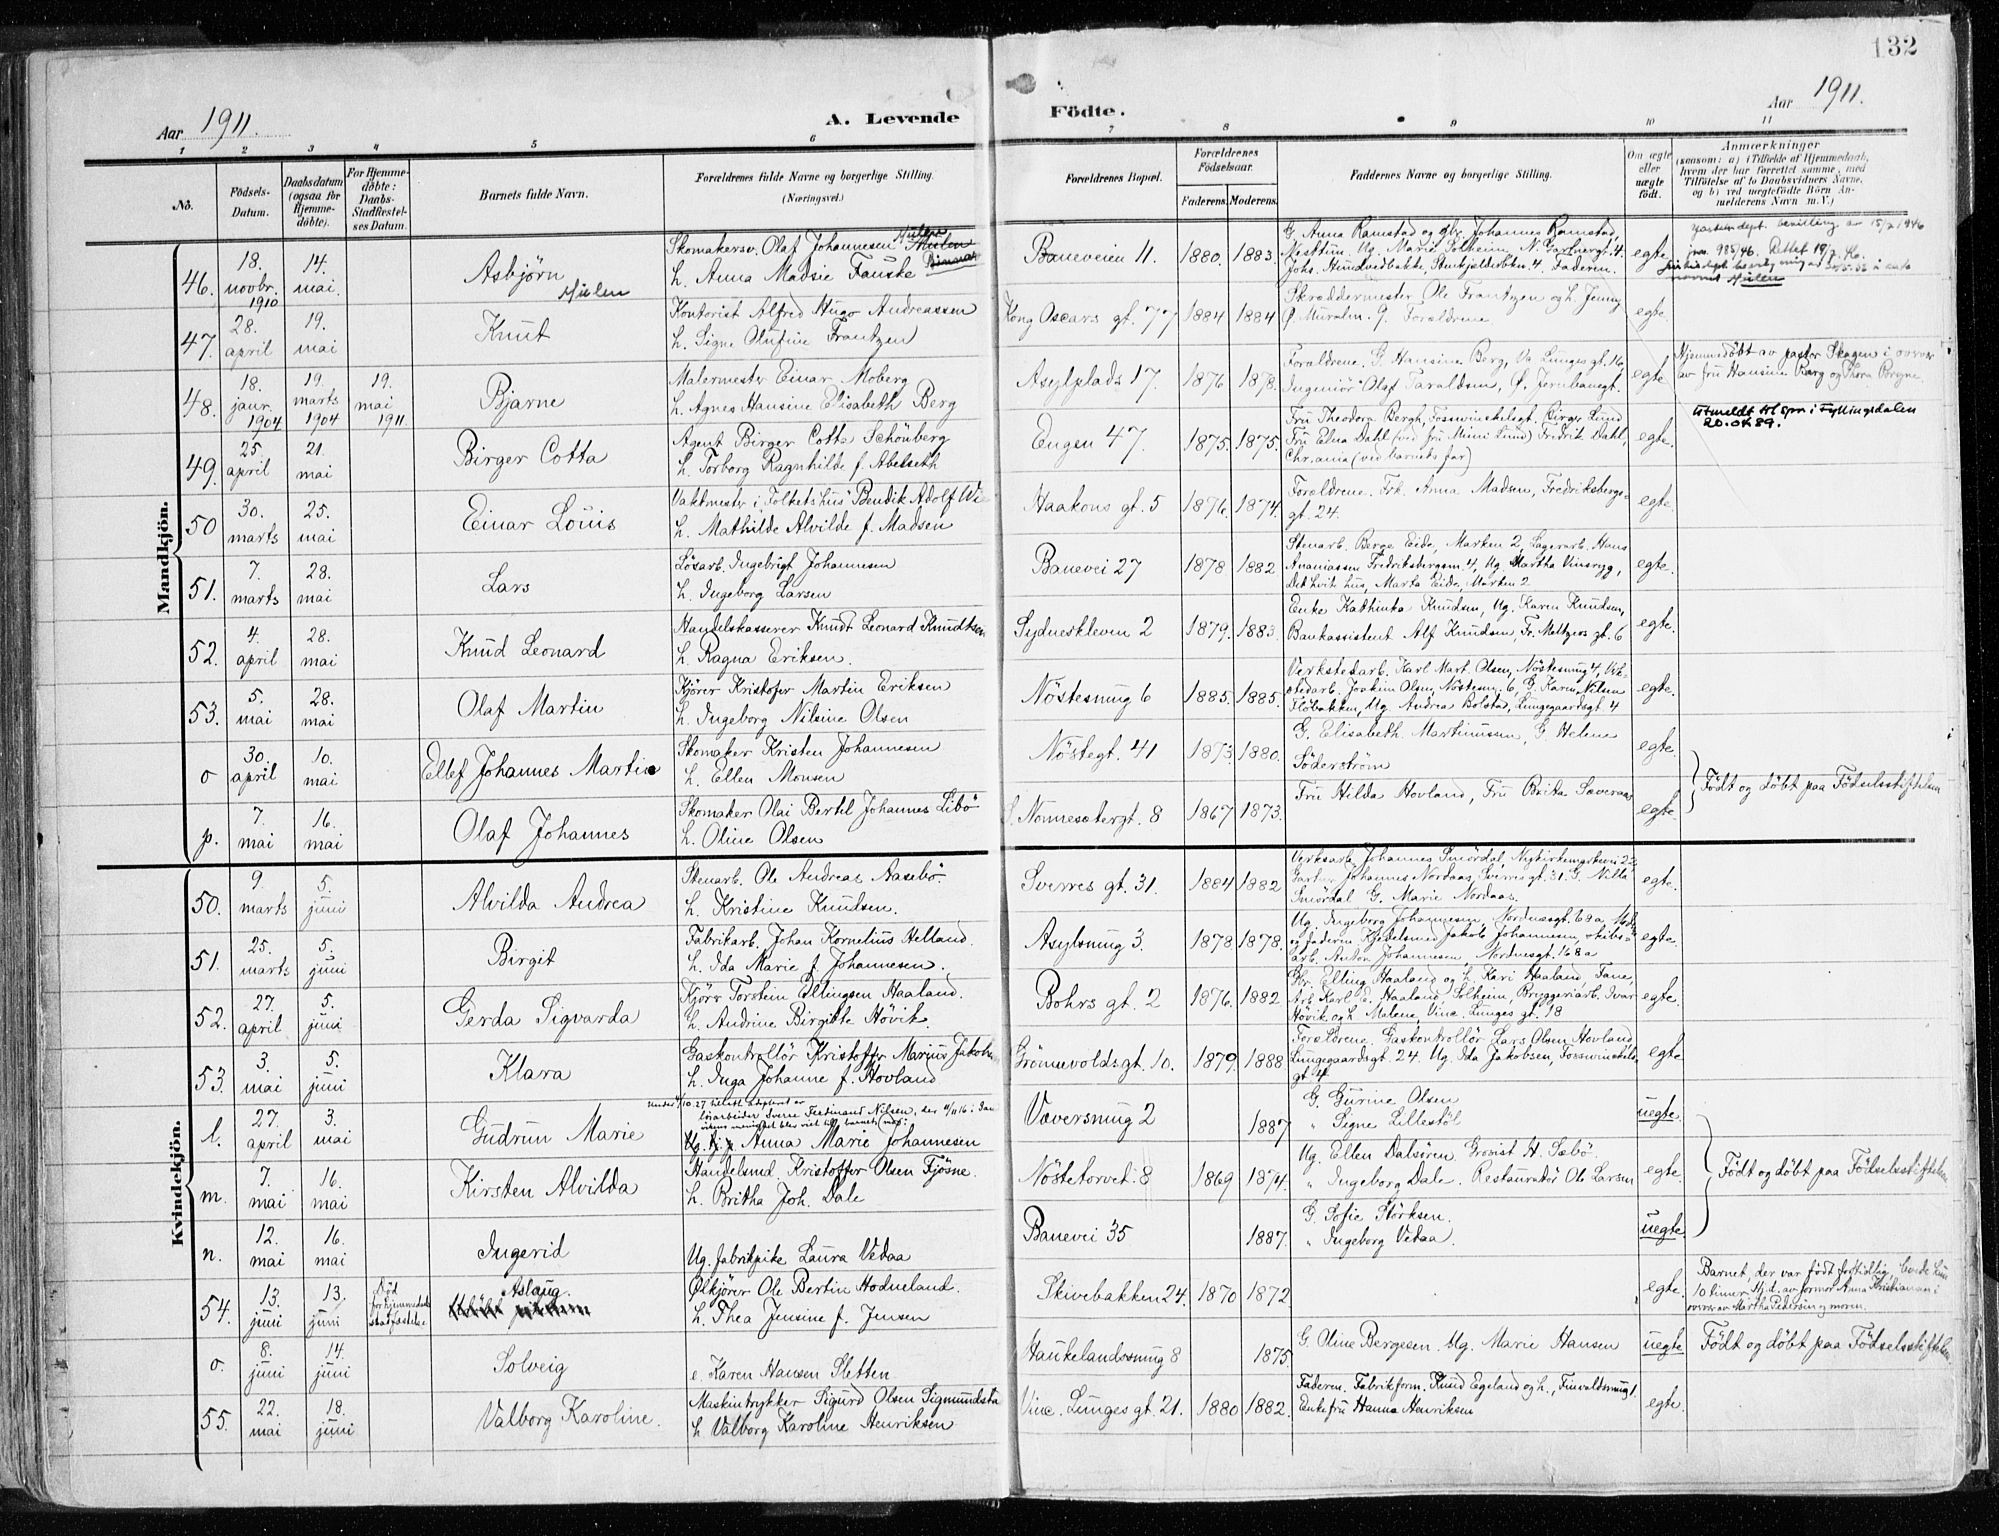 132
Aar 1911.
A. Levende
Födte.
Aar 1911.
1 2 3 4 5 6 7 8 9 10 11
No.
Födsels-Datum.
Daabsdatum (ogsaa for Hjemmedöbte).
For Hjemmedöbte: Daabs-Stadfæstelses Datum.
Barnets fulde Navn.
Forældrenes fulde Navne og borgerlige Stilling. (Næringsvei.)
Forældrenes Bopæl.
Forældrenes Födselsaar.
Faderens. Moderens.
Faddernes Navne og borgerlige Stilling.
Om ægte eller uægte födt.
Anmærkninger (saasom: a) i Tilfælde af Hjemmedaab, hvem der har forrettet samme, med Tilföielse af to Daabsvidners Navne, og b) ved uægtefödte Börn Anmelderens Navn m. V.)
Mandkjön.
46. 18. novbr. 1910 14. mai. Asbjörn Hulen
Skomakersv. Olaf Johannesen Hulen
h. Anna Madsie Fauske
Baneveien 11. 1880. 1883.
G. Anna Ramstad og gbr. Johannes Ramstad,
Nesttun, Ug. Marie Solheim, N. Gartnergt. 4.
Johs. Hundvedbakke, Stenkjelderbten. 4. Faderen.
egte.
47. 28. april 19. mai Knut
Kontorist Alfred Hugo Andreassen
h. Signe Olufine Frantzen
Kong Oscars gt. 77 1884 1884
Skræddermester Ole Frantzen og h. Jenny
Ö. Muralm. 9. Forældrene.
egte.
48. 18. janr. 1904 19. marts 1904 19. mai 1911. Bjarne
Malermester Einar Moberg
h. Agnes Hansine Elisabeth Berg
Asylplads 17 1876 1878.
Forældrene. G. Hansine Berg, Va Lunges gt. 16,
Ingeniör Olaf Taraldsen, Ö. Jernbanegt.
egte.
Hjemmedöbt av pastor Skagen i overvær
av fru Hansine Berg og Thora Borgne.
49. 25. april 21. mai Birger Cotta
Agent Birger Cotta Schönberg
h. Torborg Ragnhilde f. Abelseth
Engen 47. 1875. 1875.
Fru Theodora Bergh, Fosswinckelsgt. Birger Lund
Fru Edna Dahl (ved fru Mimi Lund) Fredrik Dahl,
Chr.ania (ved barnets far)
egte.
Utmeldt til spm i Fyllingsdalen
20.04.89.
50 30. marts 25. mai Einar Louis
Vaktmester i "Folkets hus" Bendik Adolf
h. Mathilde Alvilde f. Madsen
Haakons gt. 5 1876. 1874.
Forældrene. Frk. Anna Madsen, Fredriksbergs-
gt. 24.
egte.
51. 7. marts 28. mai Lars
Lösarb. Ingebrigt Johannesen
h. Ingeborg Larsen
Banevei 27 1878 1882
Stenarb. Berge Eide, Marken 2, Lagerarb. Hans
Ananiassen Fredriksbergsm. 4, Ug. Martha Vinsryg,
Det hvite hus, Marta Eide, Marken 2
egte.
52. 4. april 28. mai Knud Leonard
Handelskasserer Knudt Leonard Knudtsen
h. Ragna Eriksen.
Sydneskleven 2 1879. 1883.
Enke Kathinka Knudsen, Ug. Karen Knudsen,
Bankassistent Alf Knudsen, Fr. Meltzers gt. 6
egte.
53. 5. mai 28. mai Olaf Martin
Kjörer Kristofer Martin Eriksen
h. Ingeborg Nilsine Olsen
Nöstesmug 6 1885. 1885.
Verkstedarb. Karl Mart. Olsen, Nöstesmug 4, Verk-
stedarb. Joakim Olsen, Nöstesm. 6, G. Karen Nilsen
Flöbakken, Ug. Andrea Bolstad, Lungegaardsgt. 4
egte.
o 30. april 10. mai Ellef Johannes Martin
Skomaker Kristen Johannesen
h. Ellen Monsen
Nöstegt. 41 1873. 1880.
G. Elisabeth Martinusen, G. Helene
Söderström
egte.
Födt og döbt paa Födselsstiftelsen
p. 7. mai 16. mai Olaf Johannes
Skomaker Olai Bertil Johannes Libö
h. Oline Olsen
S. Nonnesætergt. 8 1867 1873.
Fru Hilda Hovland, Fru Brita Sæveraas
egte.
Kvindekjön.
50. 9. marts 5. juni Alvilda Andrea
Stenarb. Ole Andreas Aasebö.
h. Kristine Knudsen.
Sverres gt. 31. 1884 1882
Verksarb. Johannes Smördal, Nykirkemarkevei 22
Gartner Johannes Nordaas, Sverres gt. 31. G. Nilla
Smördal G. Marie Nordaas.
egte.
51. 25. marts 5. juni Birgit
Fabrikarb. Johan Kornelius Helland.
h. Ida Marie f. Johannesen.
Asylsmug 3. 1878 1878.
Ug. Ingeborg Johannesen, Nordnæsgt. 68a,
og faderen. Kjedelsmed Jakob Johannesen, skibs-
arb. Anton Johannesen, Nordnesgt. 168a
egte.
52. 27. april 5. juni Gerda Sigvarda
Kjörer Torstein Ellingsen Haaland.
h. Andrine Birgitte Hövik.
Bohrs gt. 2 1876. 1882
Gbr. Elling Haaland og h. Kari Haaland, Fane,
Arb. Karl E. Haaland, Solheim, Bryggeriarb. Ivar
Hövik og h. Malene, Vinc. Lunges gt. 18
egte.
53. 3. mai 5. juni Klara
Gaskontrollör Kristoffer Marius Jakobsen
h. Inga Johanne f. Hovland
Grönnevoldsgt. 10. 1879. 1888
Forældrene. Gaskontrollör Lars Olsen Hovland,
Lungegaardsgt. 24. Ug. Ida Jakobsen, Fosswinckels
gt 4.
egte.
l. 27. april 3. mai Gudrun Marie
Ug. Anna Marie Johannesen
Væversmug 2 1887
G. Gurine Olsen
" Signe Lillestöl
uegte.
m. 7. mai 16. mai Kirsten Alvilda
Handelsmd. Kristoffer Olsen Fjösne.
h. Britha Joh. Dale
Nöstetorvet. 8 1869 1874.
Ug. Ellen Dalsören. Grosist H. Sæbö.
" Ingeborg Dale. Restauratör Ole Larsen
egte.
Födt og döbt paa Födselsstiftelsen
n. 12. mai 16. mai Ingerid
Ug. fabrikpike Laura Vedaa
Banevei 35 1887.
G. Sofie Störksen.
" Ingeborg Vedaa.
uegte.
54. 13. juni 13. juni Död för hjemmedaabs stadfæstelse Aslaug.
Ölkjörer Ole Bertin Hodneland.
h. Thea Jensine f. Jensen
Skivebakken 24. 1870 1872
egte.
Barnet, der var födt fortidlig levde kun
10 timer. Hj.d. av jormor Anna Kristiansen i
overvær av Martha Pedersen og moren.
o. 8. juni 14. juni Solveig
e. Karen Hansen Sletten
Haukelandssmug 8 1875.
G. Oline Bergesen. Ug. Marie Hansen
uegte.
Födt og döbt paa Födselsstiftelsen
55. 22. mai 18. juni Valborg Karoline.
Maskintrykker Sigurd Olsen Sigmundstad
h Valborg Karoline Henriksen
Vinc. Lunges gt. 21. 1880 1882.
Faderen. Fabrikform. Knud Egeland og h., Finvaldsmug 1.
Enkefru Hanna Henriksen
egte.